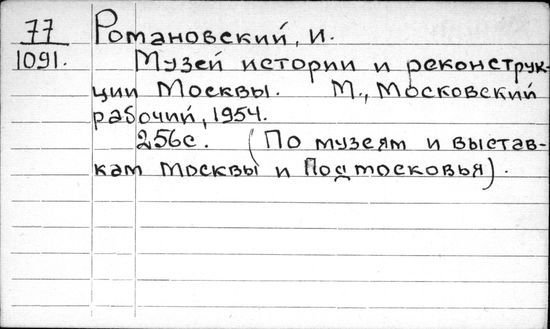 77 Романовский, И.
1091. Музей истории и реконструк-
ции Москвы. М., Московский
рабочий, 1954.
256с. (По музеям и выстав-
кам Москвы и Подмосковья).